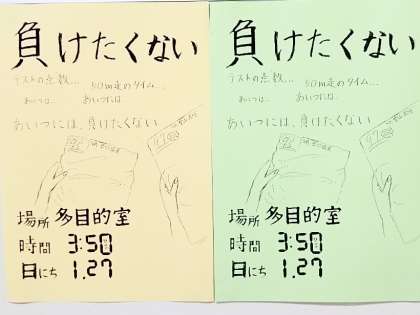 負けたくない
テストの点数…
50m走のタイム…
あいつには、
あいつには、
あいつには、負けたくない
場所 多目的室
時間 3:50
日にち 1.27
負けたくない
テストの点数…
50m走のタイム…
あいつには、
あいつには、
あいつには、負けたくない
場所 多目的室
時間 3:50
日にち 1.27